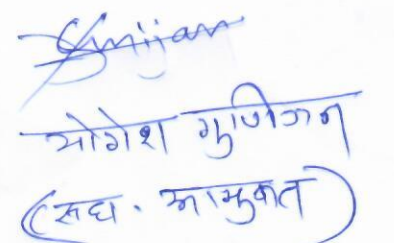 योगेश गुणिजन
(सहा. आयुक्त)